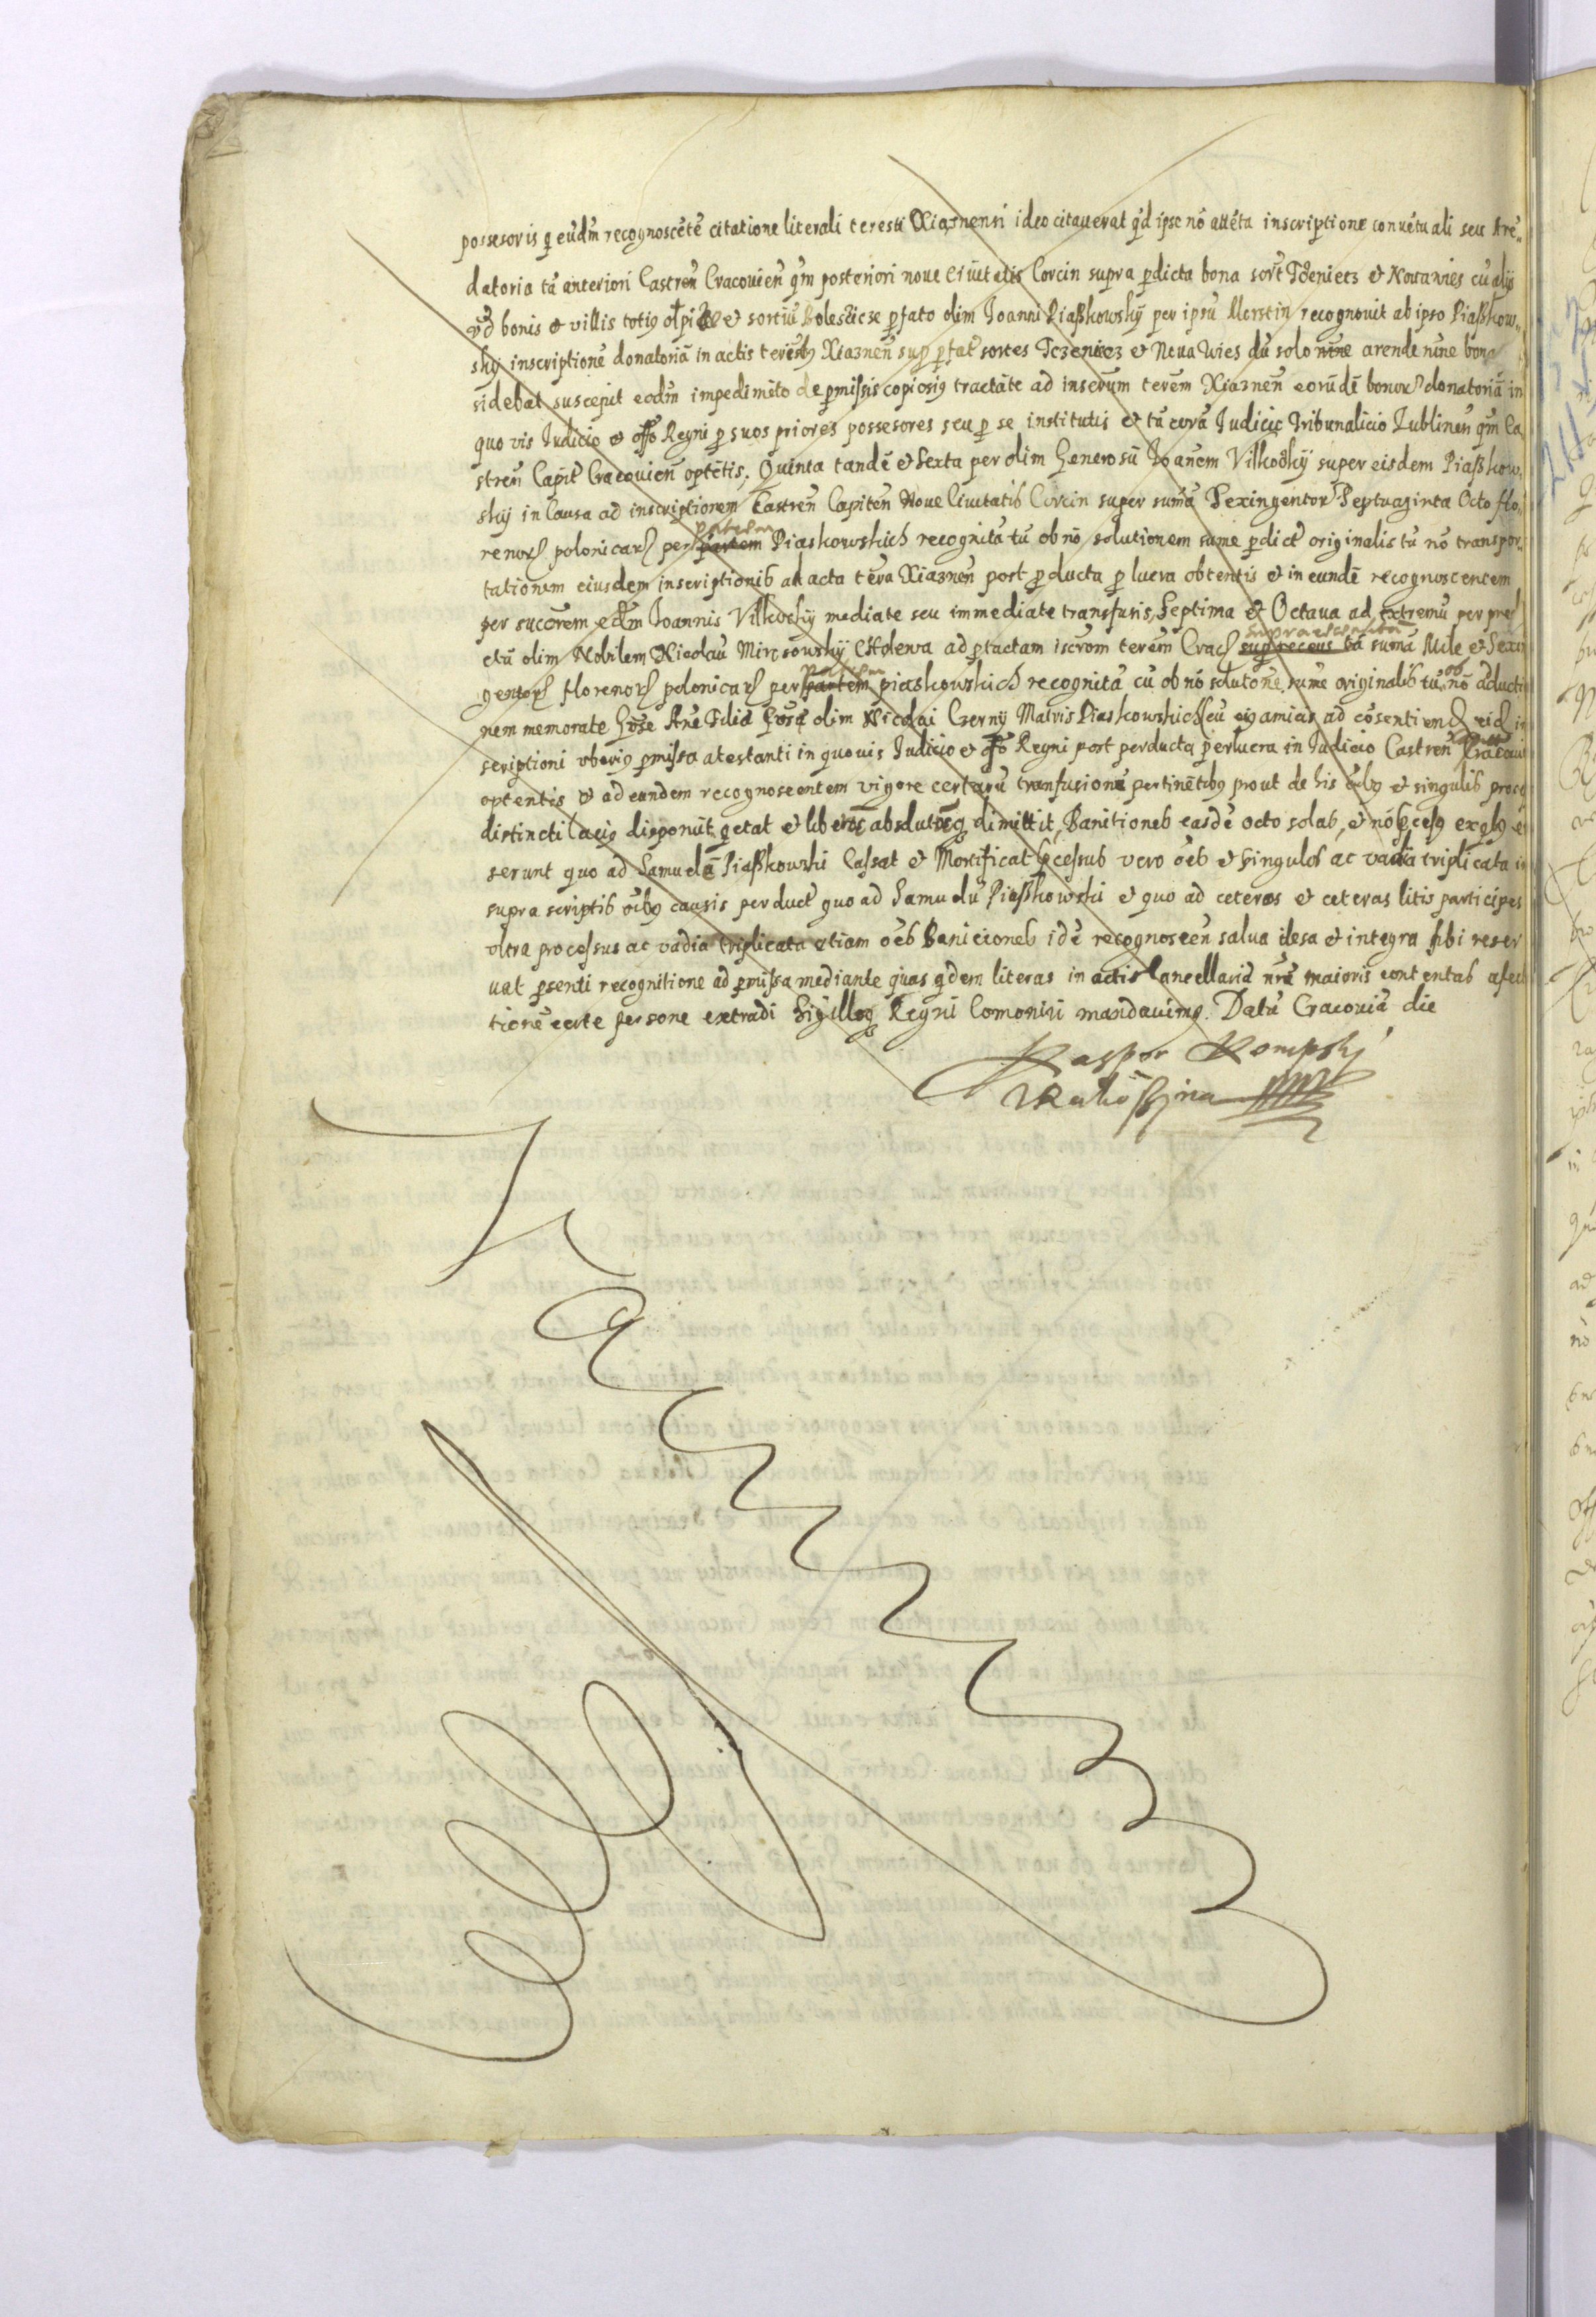 possesoris ꝑ eūdm̄ recognoscētē citatione literali teresti Xiąznensi ideo citauerat qd̄ ipse nō attēta inscriptione conuētuali seu Arē„
datoria tā anteriori Castren̄ Cracouien̄ qm̄ posteriori noue Ciuitatis Corcin supra ꝑdicta bona sort Tczenietz et Nowawies cū alys
bonis et villis et sortiū Bolescicze ꝑfato olim Joanni Piaßkowskÿ per ipsū Merstin recognouit ab ipso Piaßkow„
skÿ inscriptionē donatoriā in actis Xiaznen̄ sup ꝑfat sortes Tczenicz et Noua Wies dū solo arende nūne bona
sidebat suscepit eodm̄ impedimēto de ꝑmissis copiosiꝰ tractāte ad inscrūm terēm Xiaznen̄ eorūdē bonor donatoriā in
quo vis Judicio et offo Regni ꝑ suos priores possesores seu ꝑ se institutis et tā corā Judicio Tribunalicio Lublinen̄ qm̄ Ca
stren̄ Capit Cracouien̄ optētis. Quinta tandē et Sexta per olim Generosū Joanem Vilkockÿ super eisdem Piaßkow„
skÿ in Causa ad inscriptiorem Castren̄ Capiten̄ Noue Ciuitatis Corcin super sumā Sexingentor Septuaginta Octo flo„
renor polonicar per partem patrem Piaskowskich recognita tū ob nō solutionem sume ꝑdict originalis tū nō transpor„
tationem eiusdem inscriptionis ad acta tera Xiaznen̄ post ꝑducta ꝑ luera obtentis et in eundē recognoscentem
per sucorem edm Joannis Vilkockÿ mediate seu immediate transfusis, Septima et Octaua ad extremū per pref
ctū olim Nobilem Nicolaū Mirosowskÿ Cholewa ad ꝑtactam iscrom terēm Crac supraescripta tā sumā Mile et Sexin
gentor florenor polonicar per partem patrem piaskowskich recognita cū ob nō solutonē sume originalis tū ob nō aducti
nem memorate Gn̄se Ane Filia olim Nicolai Czernÿ Matris Piaskowskich seu eiꝰ amicar ad cōsentiend eid in
scriptioni vberiꝰ ꝑmissa atestanti in quouis Judicio et offo Regni post perducta perluera in Judicio Castren̄ Cracoui
optentis et ad eundem recognoscentem vigore certarū transfusionū pertinētibꝰ prout de his oībꝰ et singulis proce
distincti laciꝰ disponūt qetat et liberos absolutosq dimittit, Banitiones easdē octo solas, et nō ꝓcesꝰ ex qbꝰ e
serunt quo ad Samuelē Piaßkowski Cassat et Mortificat ꝓcessus vero oēs et singulos ac vadia triplicata in
supra scriptis oībꝰ causis perduct quo ad Samuelū Piaßkowski et quo ad ceteros et ceteras litis participes
vltra processus ac vadia triplicata etiam oēs Baniciones idē recognoscēn salua ilesa et integra sibi reser
uat ꝑsenti recognitione ad ꝑmissa mediante quas qdem literas in actis Cancellaria nra maioris contentas afect
tionē certe persone extradi Sigilloq Regni Comoniri mandauimꝰ. Datū Cracouiā die
Kaspor